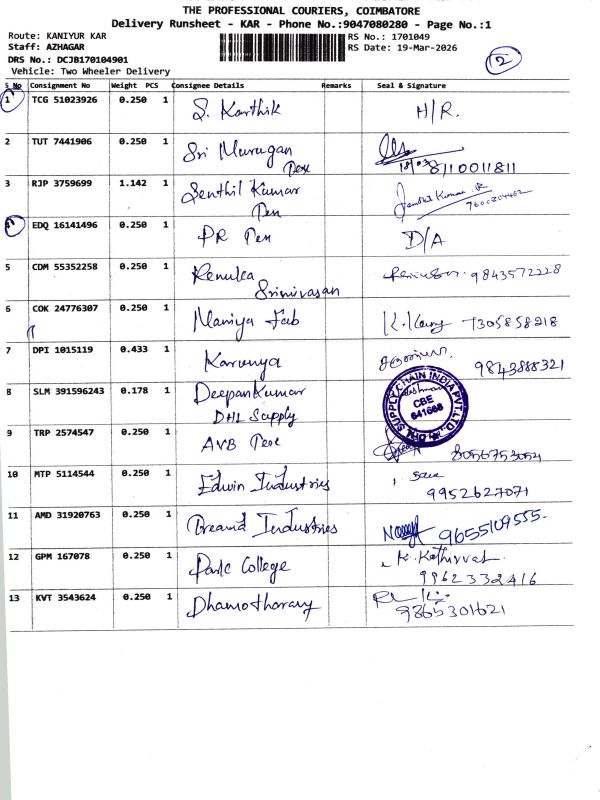 THE PROFESSIONAL COURIERS, COIMBATORE
Delivery Runsheet - KAR - Phone No.:9047080280 - Page No.:1
Route: KANIYUR KAR
RS No.: 1701049
Staff: AZHAGAR
RS Date: 19-Mar-2026
DRS No.: DCJB170104901
2
Vehicle: Two Wheeler Delivery
S No Consignment No Weight PCS Consignee Details Remarks Seal & Signature
1 TCG 51023926 0.250 1 S. Karthik H/R.
2 TUT 7441906 0.250 1 Sri Murugan
8110011811
3 RJP 3759699 1.142 1 Senthil Kumar Senthil Kumar. R
Pen 9600204462
4 EDQ 16141496 0.250 1 PR Pen D/A
5 CDM 55352258 0.250 1 Renuka 9843572228
Srinivasan
6 COK 24776307 0.250 1 Maniya Fab 7305858218
7 DPI 1015119 0.433 1 Karunya
9843888321
8 SLM 391596243 0.178 1 Deepan Kumar
DHL Supply
DHL SUPPLY CHAIN INDIA PVT. LTD.
CBE
641668
9 TRP 2574547 0.250 1 AVB
8056753054
10 MTP 5114544 0.250 1 Edwin Industries
9952627071
11 AMD 31920763 0.250 1 Industries 9655109555.
12 GPM 167078 0.250 1 Park College K. Kathirvel
9962332416
13 KVT 3543624 0.250 1 Dhamotharan
9865301621